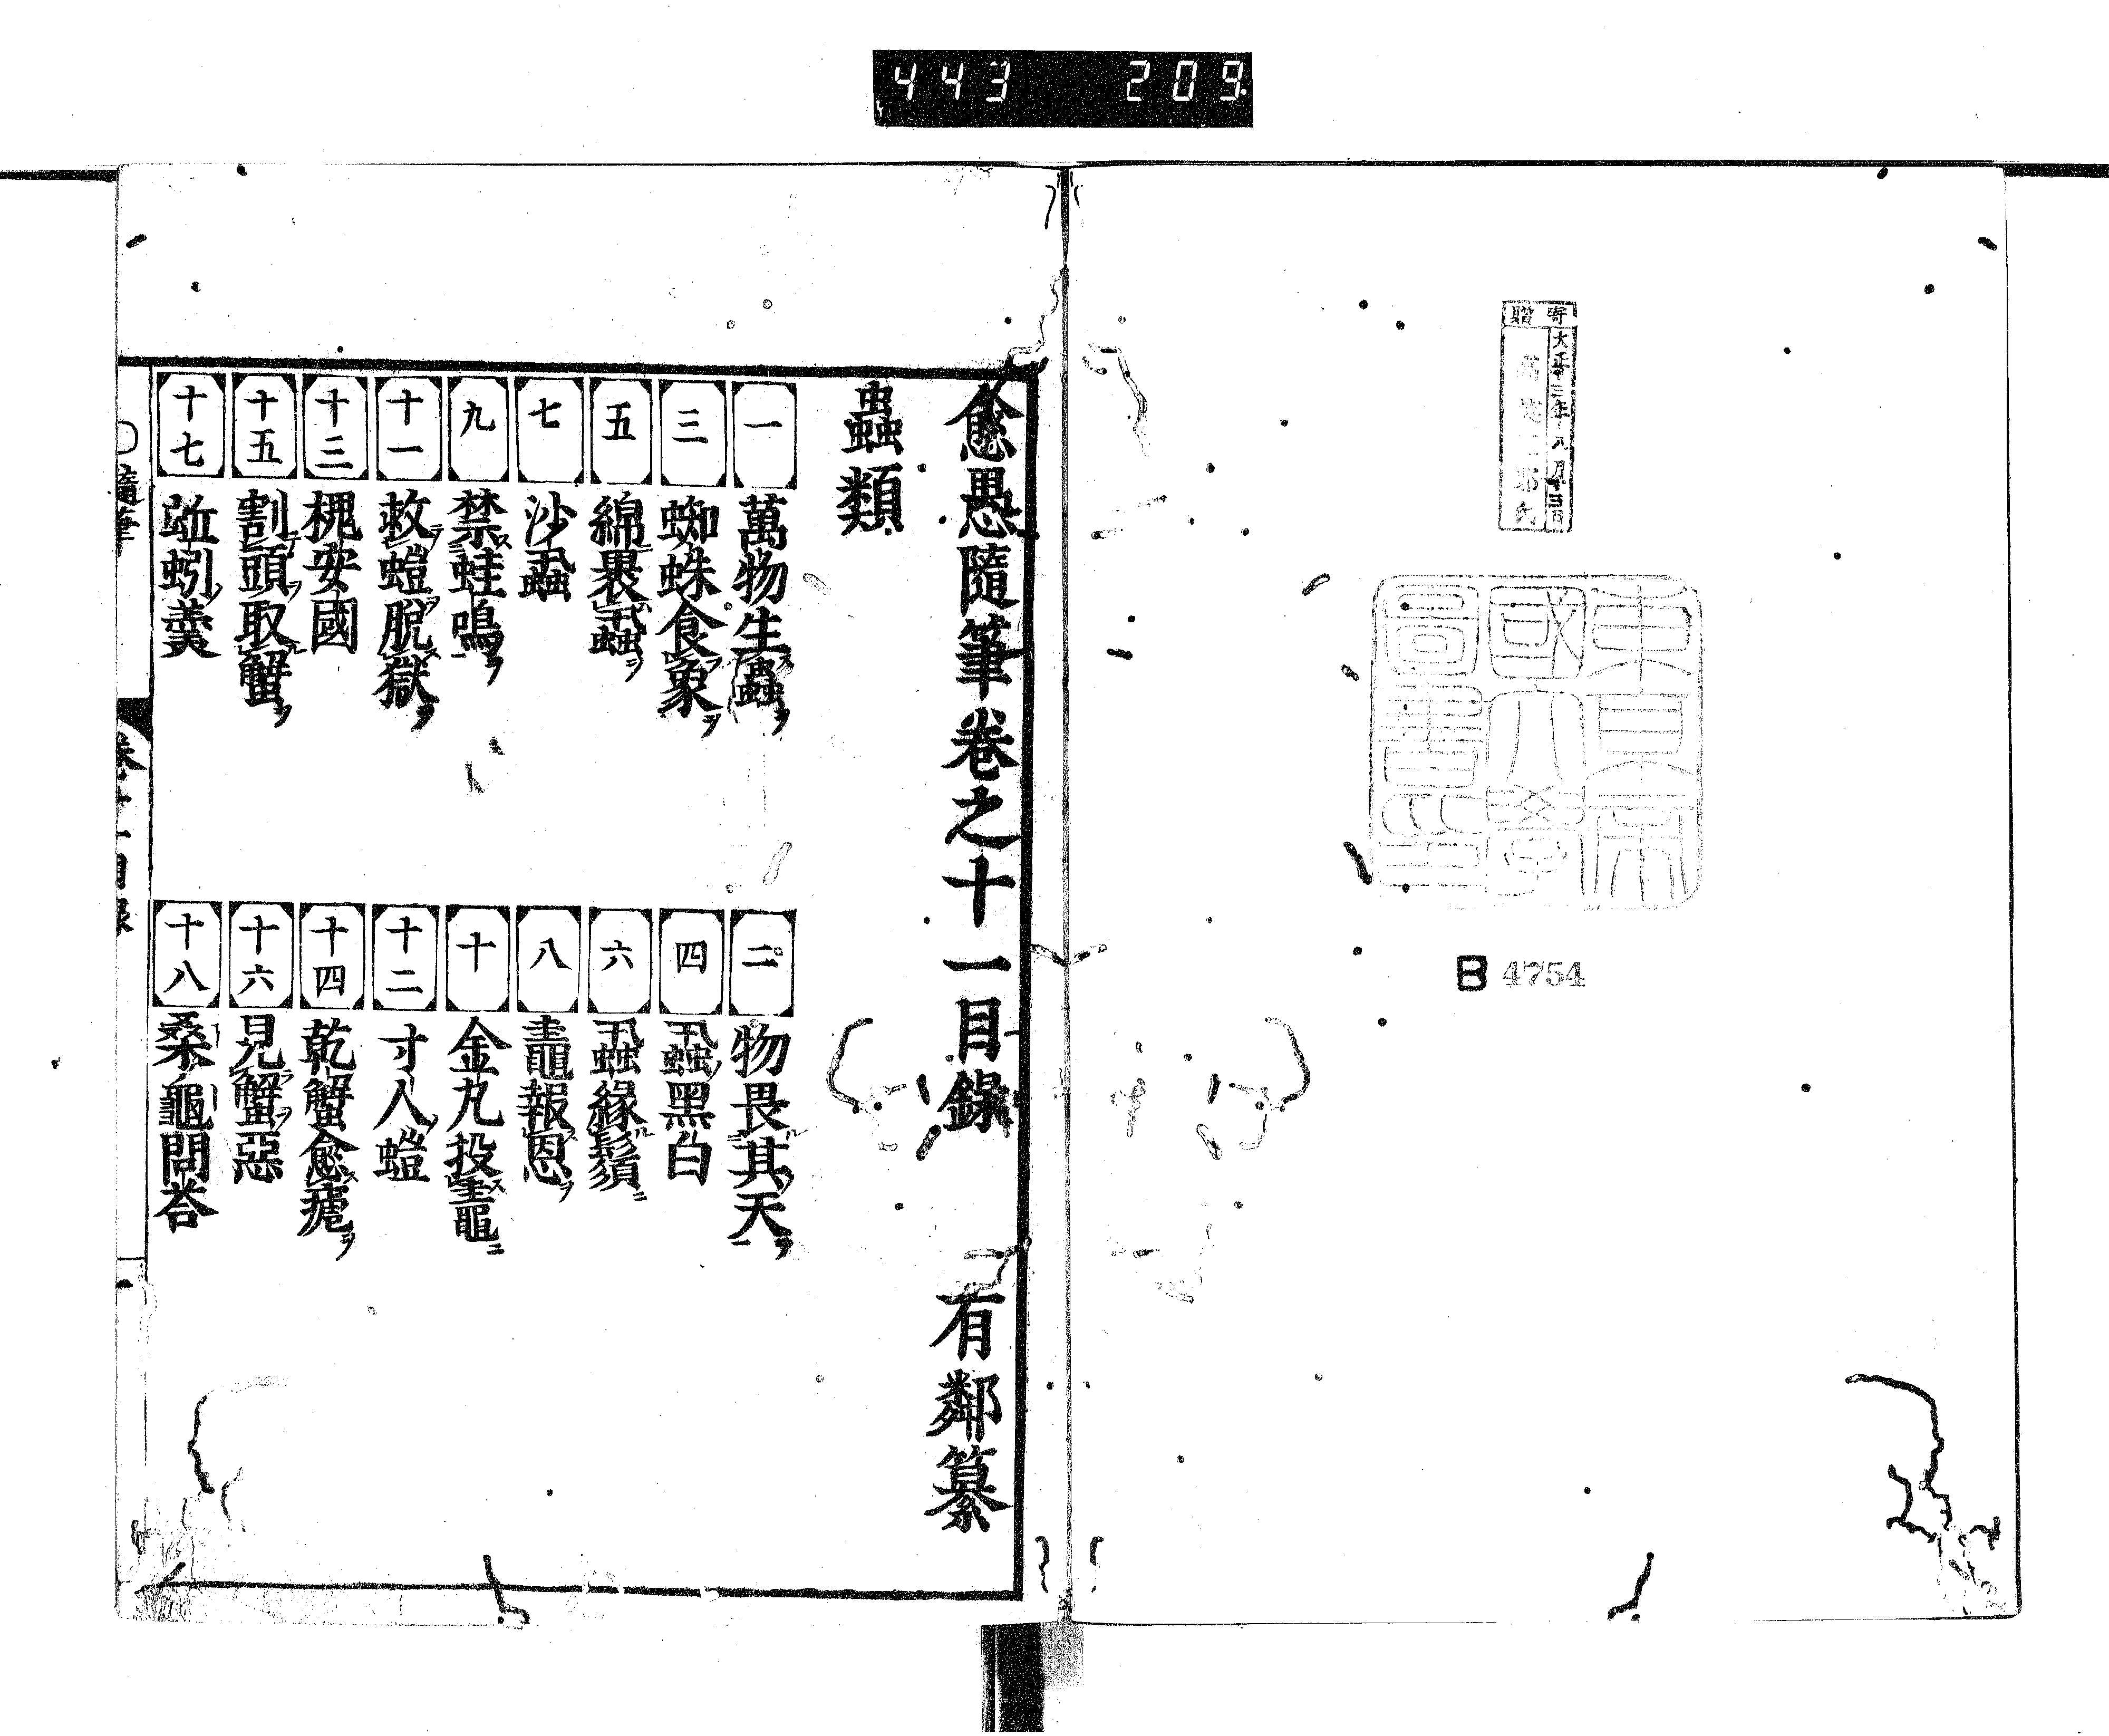 443 209
寄贈
大正十三年八月十三日
東京帝
國大學
圖書印
B 4754
愈愚隨筆卷之十一目錄 有鄰纂
蟲類
一 萬物生蟲ヲ 二 物畏其天ヲ
三 蜘蛛食象ヲ 四 虱黑白
五 綿裹虱 六 虱緣鬚ニ
七 沙蝨 八 鼃報恩ヲ
九 禁蛙鳴ヲ 十 金丸投鼃ニ
十一 救螘脫獄ヲ 十二 寸人螘
十三 槐安國 十四 乾蟹愈瘧ヲ
十五 割頭取蟹ヲ 十六 見蟹惡
十七 蚯蚓羹 十八 桑龜問荅
隨筆 卷十一目錄 一